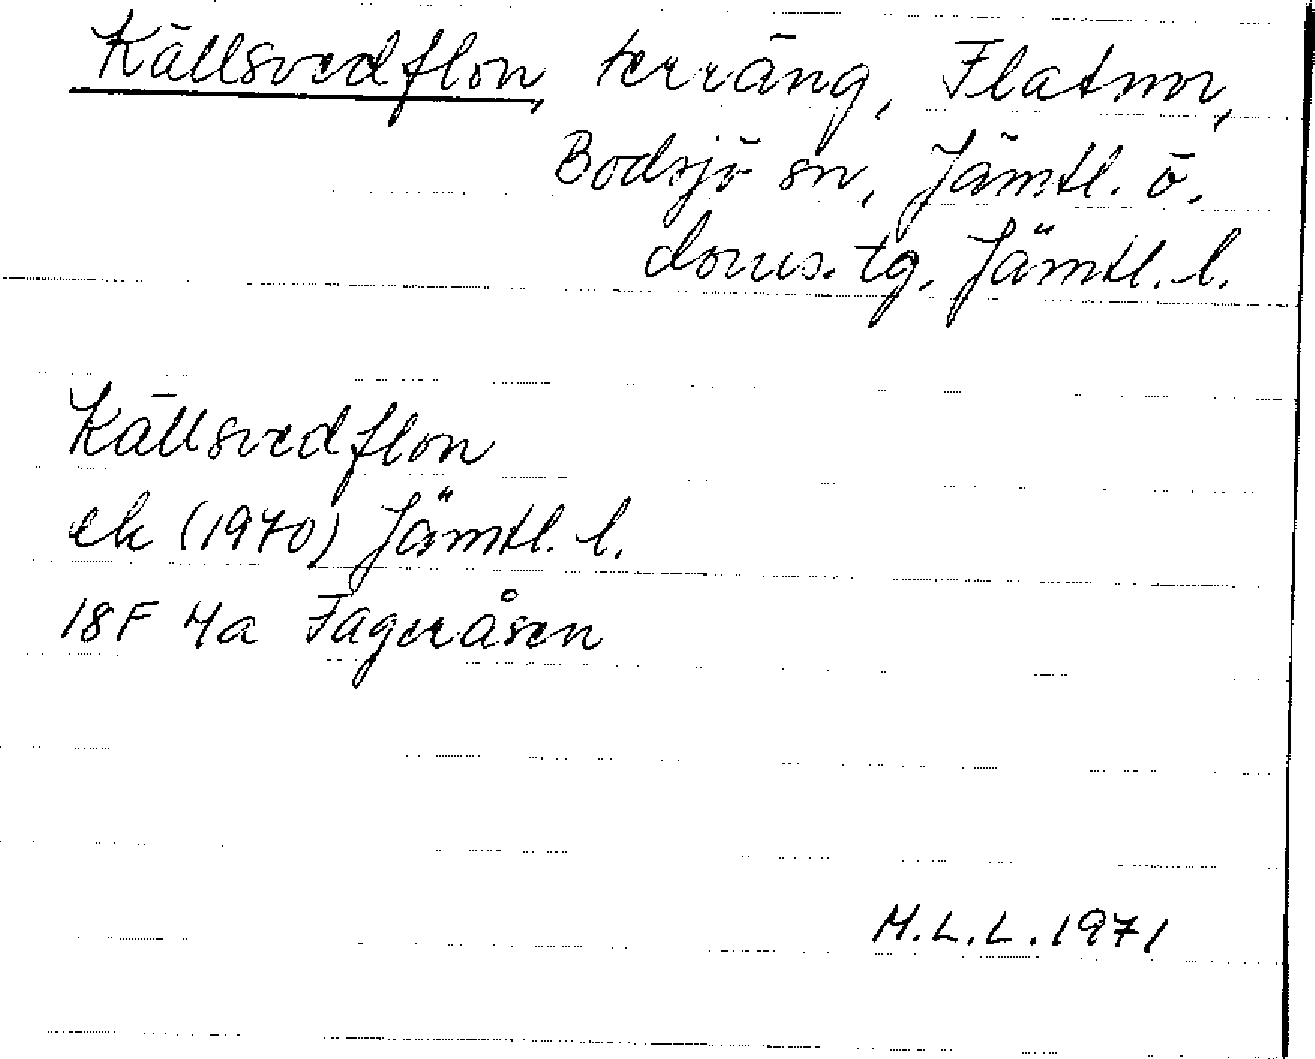 Källsvedflon, terräng, Flatnor,
Bodsjö sn, Jämtl. ö.
doms. tg, Jämtl. l.
Källsvedflon
ek (1970) Jämtl. l.
18F 4a Fageråsen
M.L.L. 1971